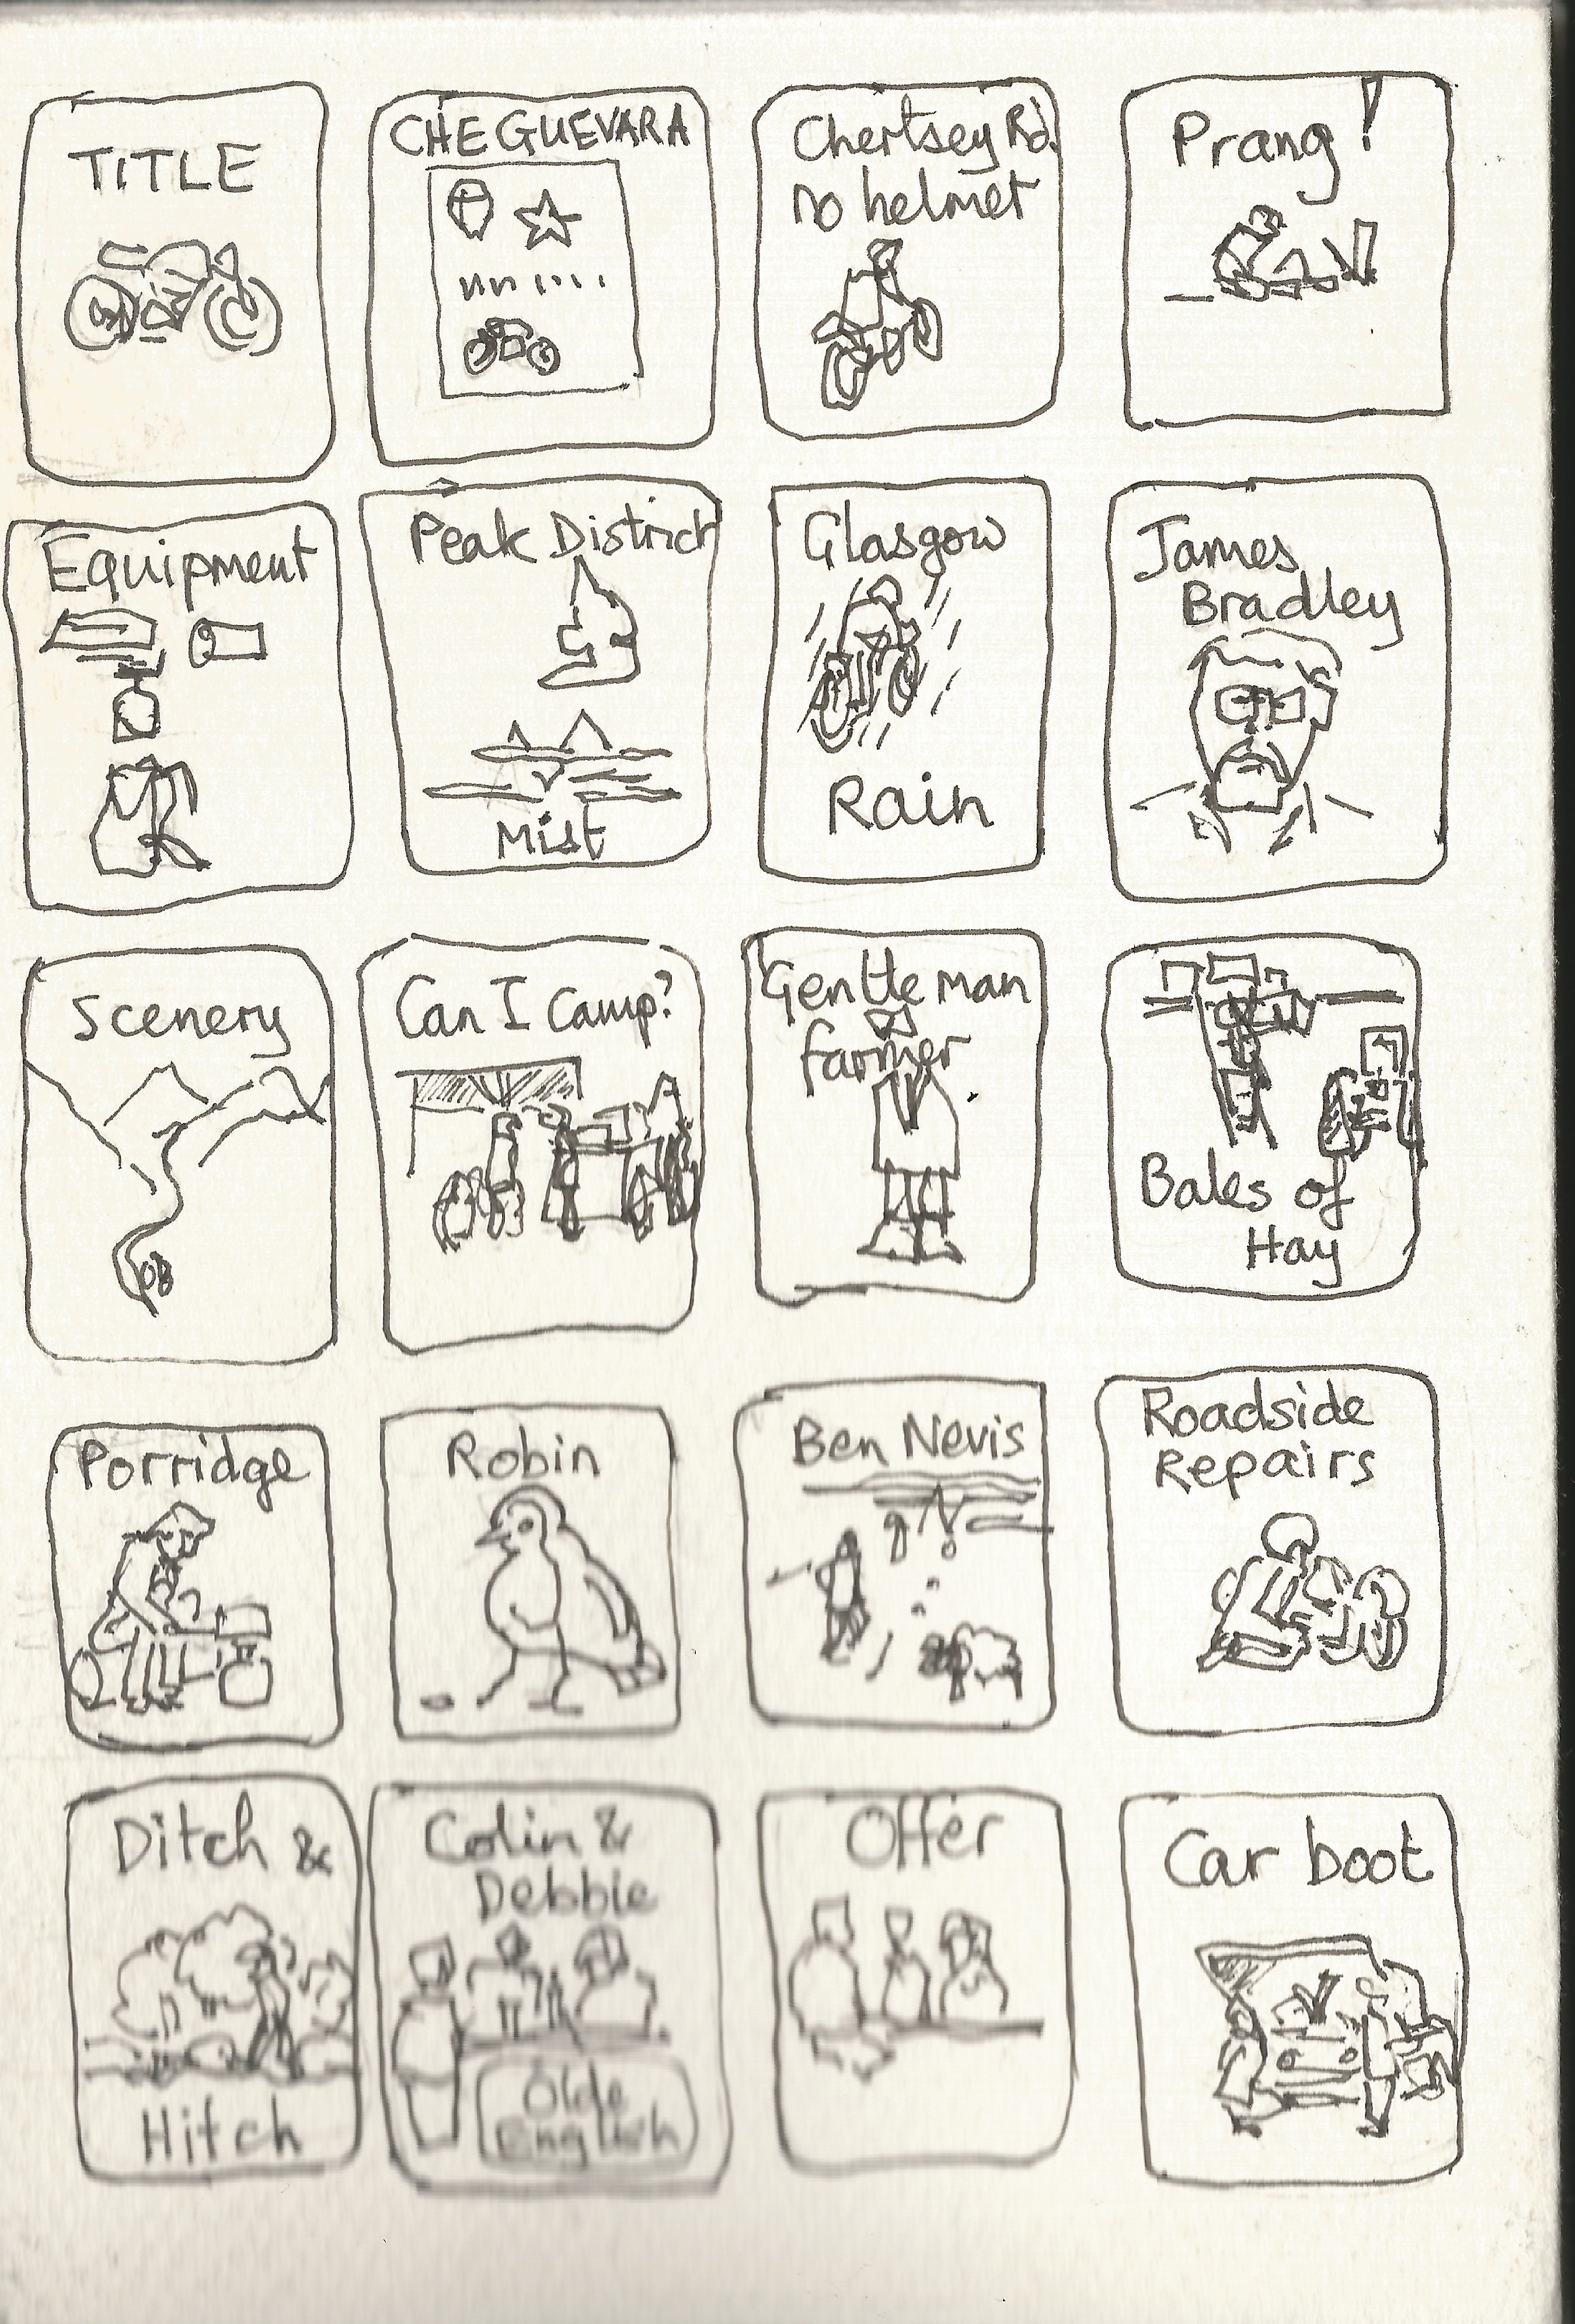 TITLE
CHE GUEVARA
Chertsey Rd.
no helmet
Prang!
Equipment
Peak District
Mist
Glasgow
Rain
James
Bradley
Scenery
Can I Camp?
Gentleman
farmer
Bales of
Hay
Porridge
Robin
Ben Nevis
Roadside
Repairs
Ditch &
Hitch
Colin &
Debbie
Olde
English
Offer
Car boot